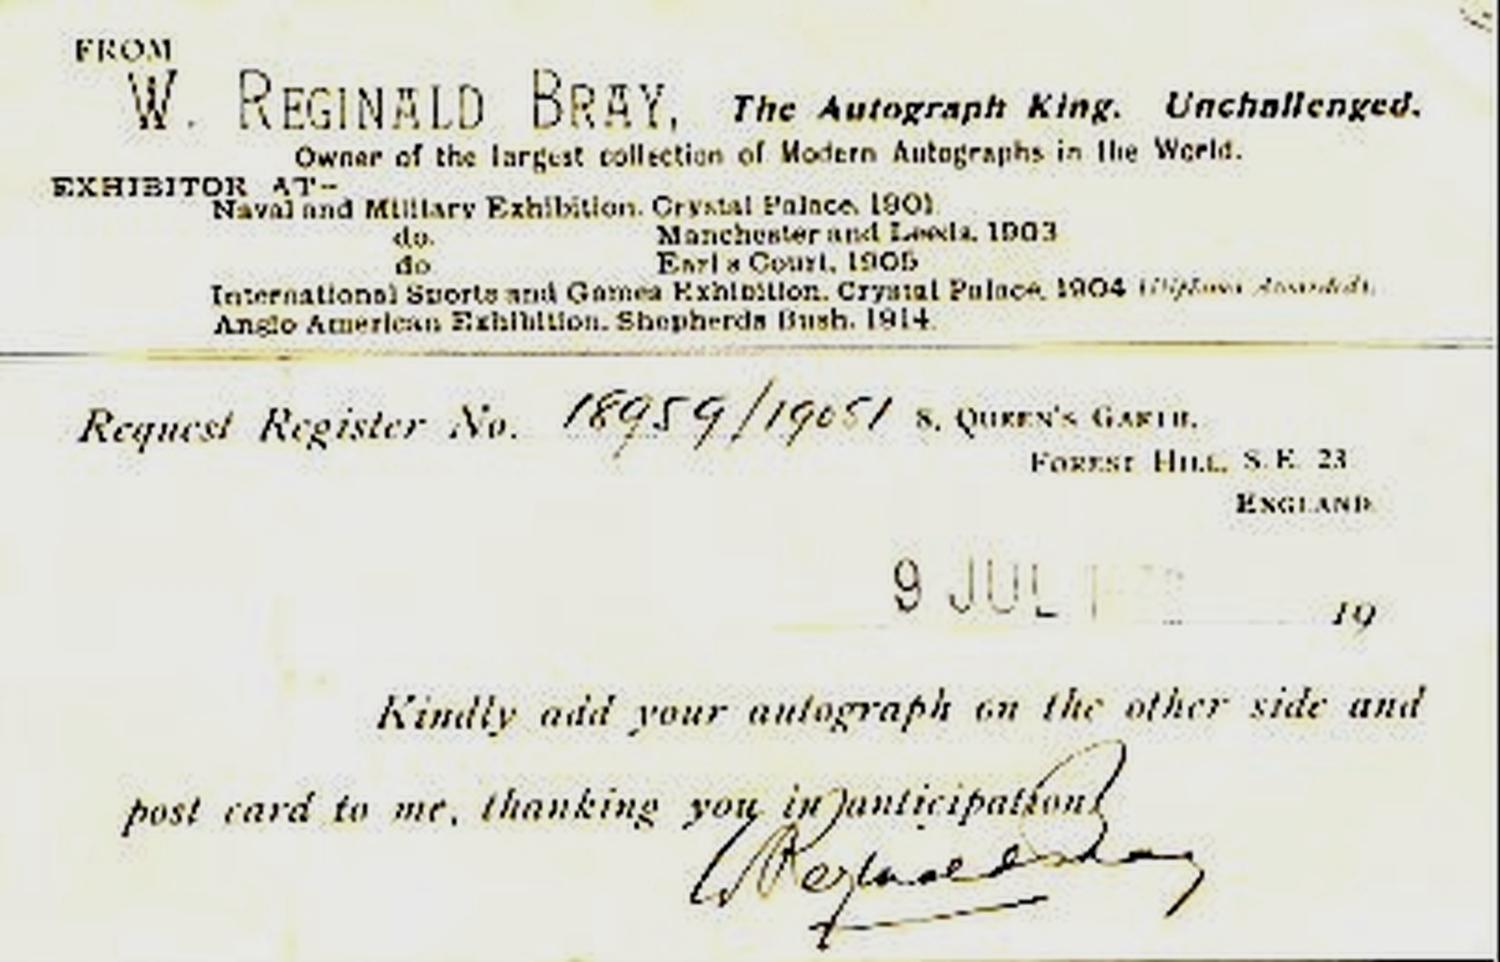 FROM
W. REGINALD BRAY, The Autograph King. Unchallenged.
Owner of the largest collection of Modern Autographs in the World.
EXHIBITOR AT--
Naval and Military Exhibition, Crystal Palace, 1901.
do. Manchester and Leeds, 1903
do Earl's Court, 1905
International Sports and Games Exhibition, Crystal Palace, 1904 (Diploma Awarded).
Anglo American Exhibition, Shepherds Bush, 1914.
Request Register No. 18959/19051 8, QUEEN'S GARTH,
FOREST HILL, S.E. 23
ENGLAND
9 JUL 19
Kindly add your autograph on the other side and
post card to me, thanking you in anticipation
W Reginald Bray